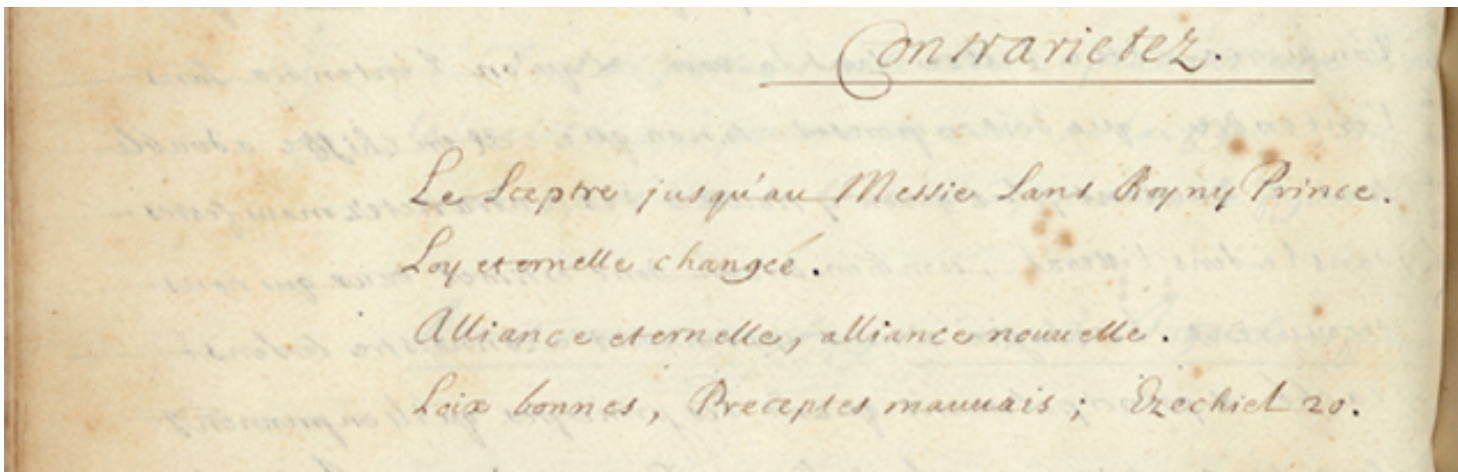 Contrarietez.
Le Sceptre jusqu'au Messie Sans Roy ny Prince.
Loy eternelle changée.
Alliance eternelle, alliance nouuelle.
Loix bonnes, Preceptes mauuais; Ezechiel 20.